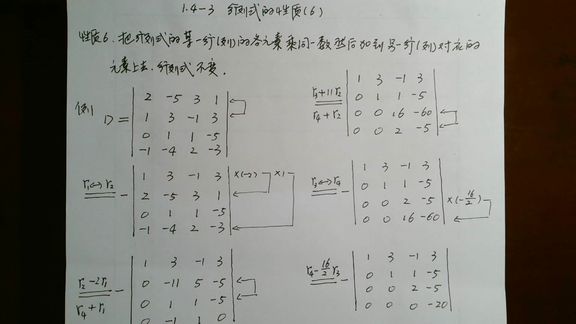 1.4-3 行列式的性质(6)
性质6. 把行列式的某一行(列)的各元素乘同一数然后加到另一行(列)对应的
元素上去,行列式不变.
例1 D = | 2 -5 3 1 |
| 1 3 -1 3 |
| 0 1 1 -5 |
| -1 -4 2 -3 |
r₁↔r₂ - | 1 3 -1 3 | ×(-2) ×1
| 2 -5 3 1 |
| 0 1 1 -5 |
| -1 -4 2 -3 |
r₂-2r₁ r₄+r₁ - | 1 3 -1 3 |
| 0 -11 5 -5 |
| 0 1 1 -5 |
| 0 -1 1 0 |
r₃+11r₂ r₄+r₂ | 1 3 -1 3 |
| 0 1 1 -5 |
| 0 0 16 -60 |
| 0 0 2 -5 |
r₃↔r₄ - | 1 3 -1 3 |
| 0 1 1 -5 |
| 0 0 2 -5 | ×(-16/2)
| 0 0 16 -60 |
r₄-16/2 r₃ - | 1 3 -1 3 |
| 0 1 1 -5 |
| 0 0 2 -5 |
| 0 0 0 -20 |